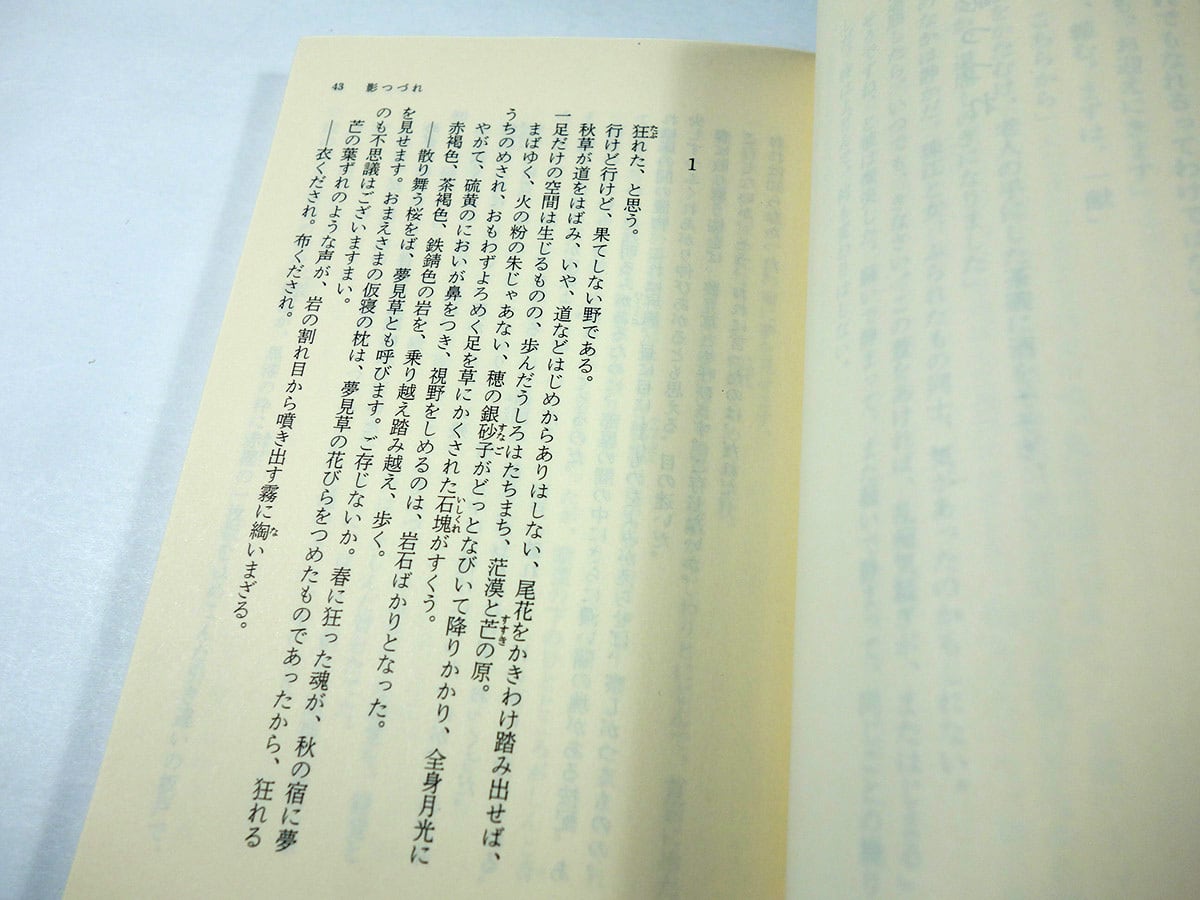 43 影つづれ
1
狂れた、と思う。
行けど行けど、果てしない野である。
秋草が道をはばみ、いや、道などはじめからありはしない、尾花をかきわけ踏み出せば、
一足だけの空間は生じるものの、歩んだうしろはたちまち、茫漠と芒の原。
まばゆく、火の粉の朱じゃあない、穂の銀砂子がどっとなびいて降りかかり、全身月光に
うちのめされ、おもわずよろめく足を草にかくされた石塊がすくう。
やがて、硫黄のにおいが鼻をつき、視野をしめるのは、岩石ばかりとなった。
赤褐色、茶褐色、鉄錆色の岩を、乗り越え踏み越え、歩く。
――散り舞う桜をば、夢見草とも呼びます。ご存じないか。春に狂った魂が、秋の宿に夢
を見せます。おまえさまの仮寝の枕は、夢見草の花びらをつめたものであったから、狂れる
のも不思議はございますまい。
芒の葉ずれのような声が、岩の割れ目から噴き出す霧に綯いまざる。
――衣くだされ。布くだされ。